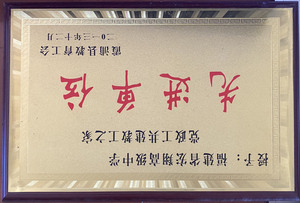 授予：福建省宏翔高级中学
党政工共建教工之家
先进单位
霞浦县教育工会
二〇一三年十二月